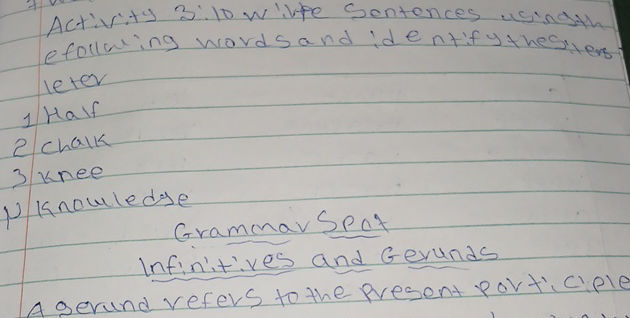 Activity 3:10 Write Sentences using th
e following words and identify the silent
leter
1 Half
2 Chalk
3 Knee
Knowledge
Grammar Spot
Infinitives and Gerunds
A gerund refers to the present participle